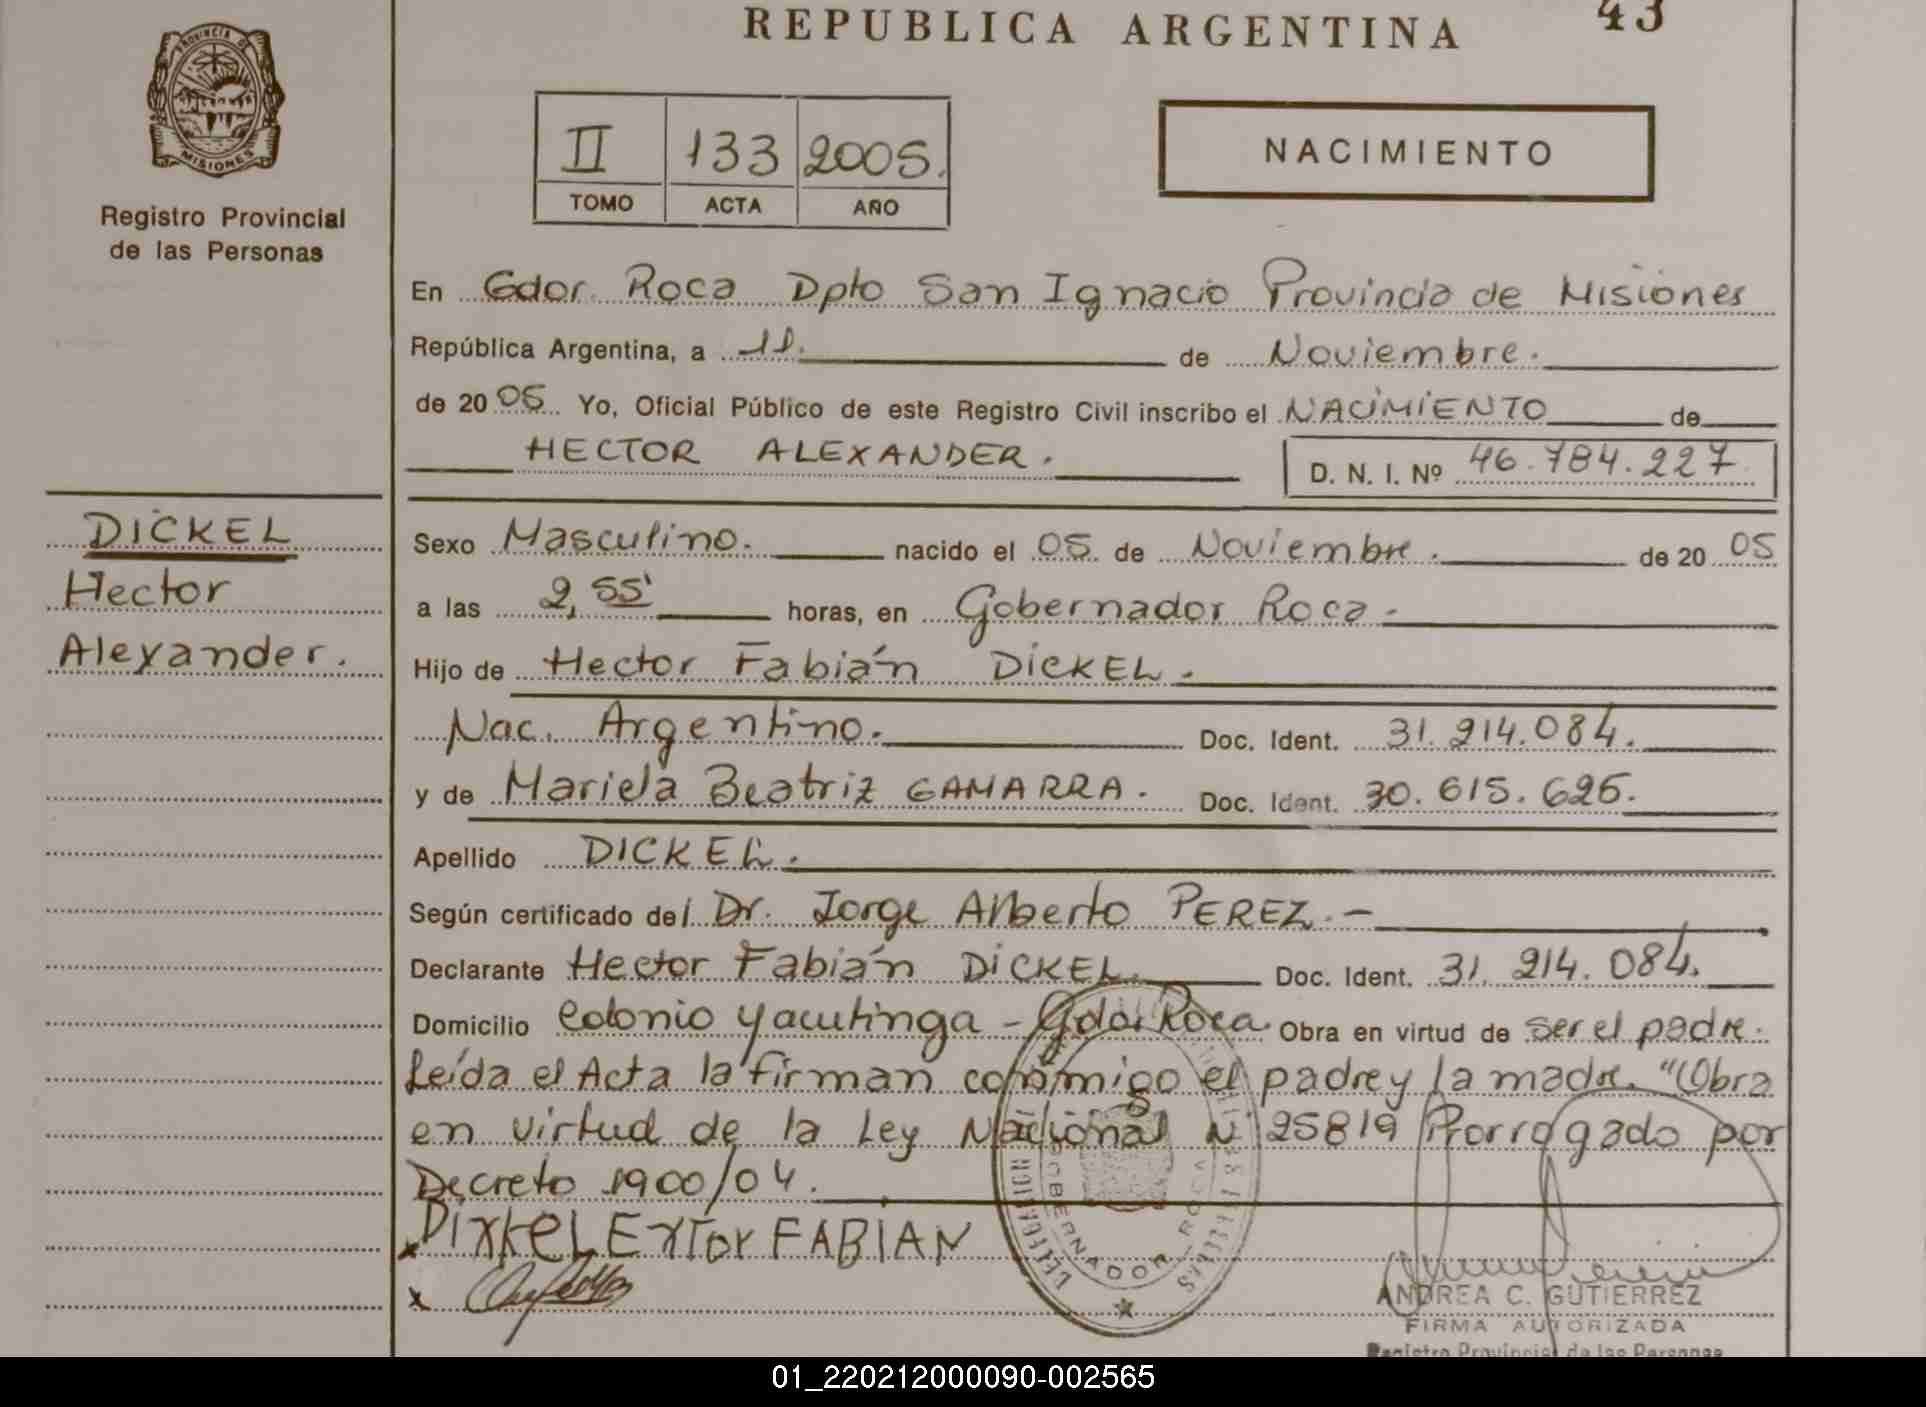 REPUBLICA ARGENTINA
43
PROVINCIA DE
MISIONES
Registro Provincial
de las Personas
II 133 2005.
TOMO ACTA AÑO
NACIMIENTO
En Gdor. Roca Dpto San Ignacio Provincia de Misiones
República Argentina, a 11. de Noviembre.
de 20 05 Yo, Oficial Público de este Registro Civil inscribo el NACIMIENTO de
HECTOR ALEXANDER.
D. N. I. Nº 46.784.227
DICKEL
Hector
Alexander.
Sexo Masculino. nacido el 05 de Noviembre. de 20 05
a las 2,55' horas, en Gobernador Roca.
Hijo de Hector Fabián DICKEL.
Nac. Argentino. Doc. Ident. 31.214.084.
y de Mariela Beatriz GAMARRA. Doc. Ident. 30.615.626.
Apellido DICKEL.
Según certificado del Dr. Jorge Alberto PEREZ.-
Declarante Hector Fabián DICKEL. Doc. Ident. 31.214.084.
Domicilio Colonio Yacutinga - Gdor Roca. Obra en virtud de ser el padre.
Leída el Acta la firman conmigo el padre y la madre. "(Obra
en virtud de la Ley Nacional N° 25819 Prorrogado por
Decreto 1900/04.
x DIXKEL EXTOR FABIAN
x
GOBERNADOR ROCA
ANDREA C. GUTIERREZ
FIRMA AUTORIZADA
Registro Provincial de las Personas
01_220212000090-002565